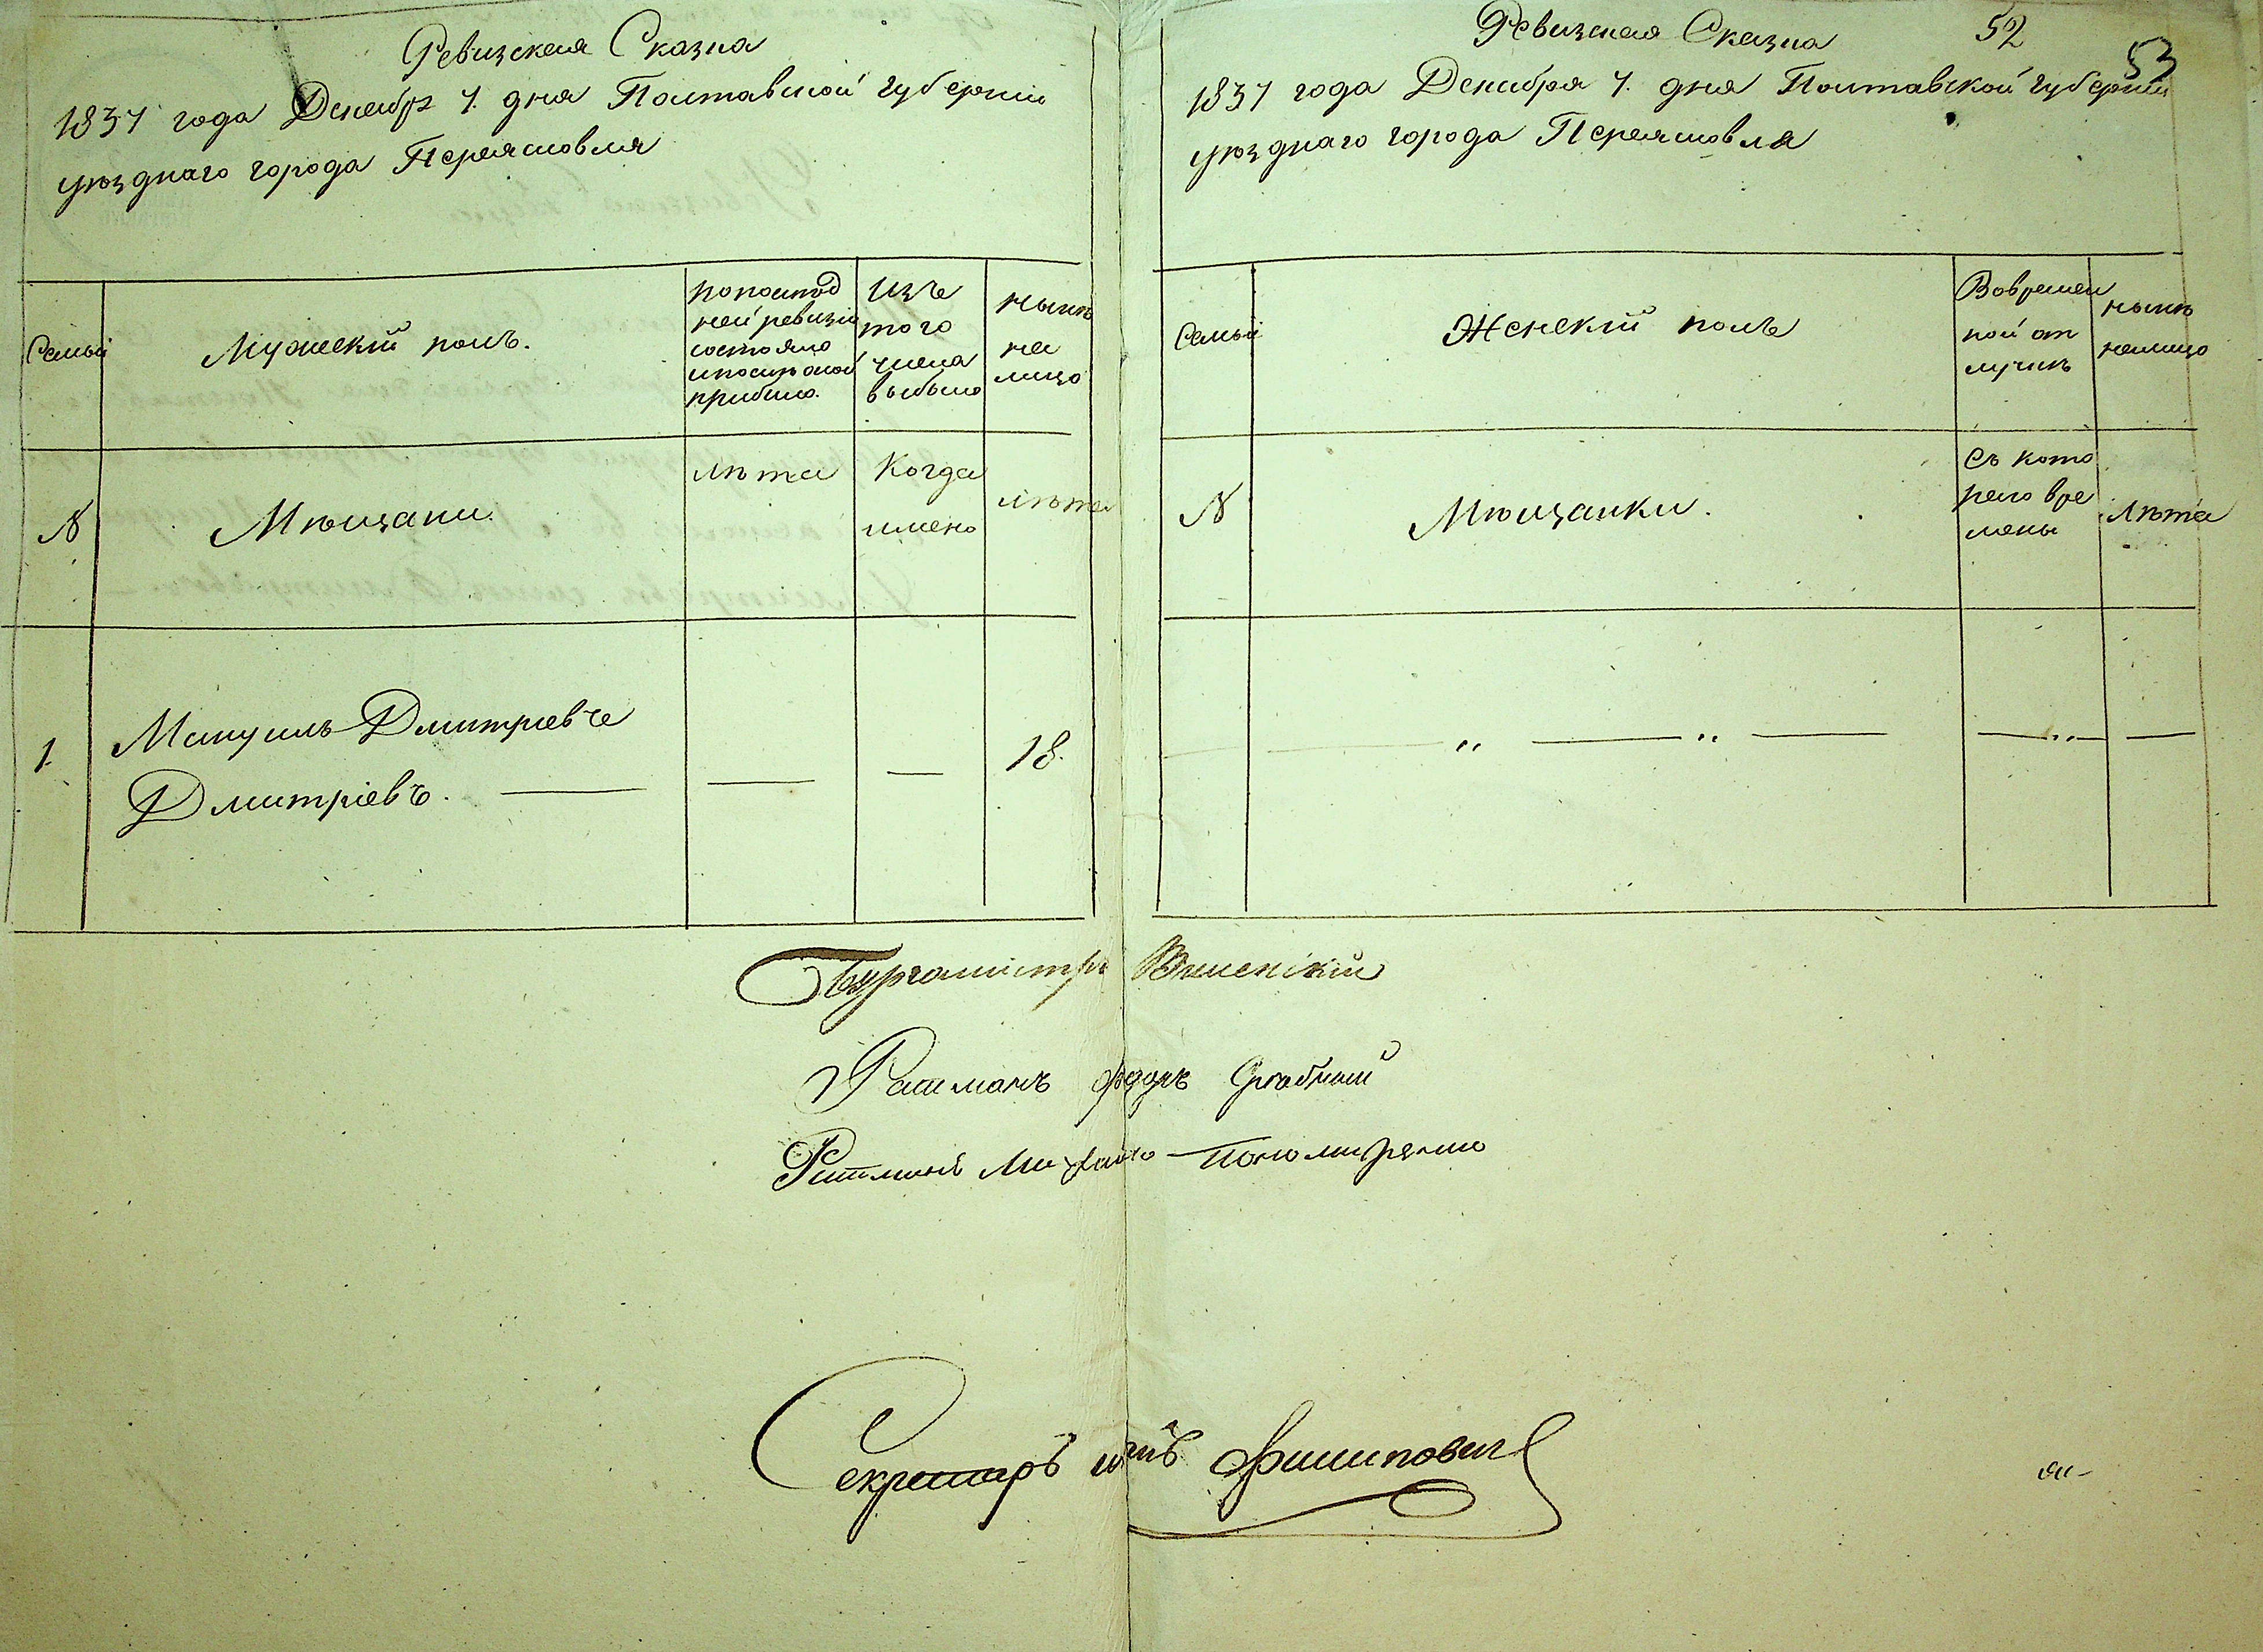 Ревизская Сказка
1837 года Декабря 7. дня Полтавской губернии
уѣзднаго города Переяславля
Семьи
Мужескій полъ.
по послѣд
ней ревизіи
состояло
и послѣ оной
прибыло.
Изъ
того
числа
выбыло
нынѣ
на
лицо
№
Мѣщани.
лѣта
Когда
имено
лѣта
1.
Мануилъ Дмитріевъ
Дмитріевъ. —
—
—
18.
Ревизская Сказка
52
53
1837 года Декабря 7. дня Полтавской губерніи
уѣзднаго города Переяславля
Семьи
Женскій полъ
Вовремен
ной от
лучкѣ
нынѣ
налицо
№
Мѣщанки.
Съ кото
раго вре
мены
Лѣта
— „ — „ — — „ — —
Бургамистръ
Ратманъ
Ратманъ Михайло Пономаренко
Секретаръ Филиповичъ